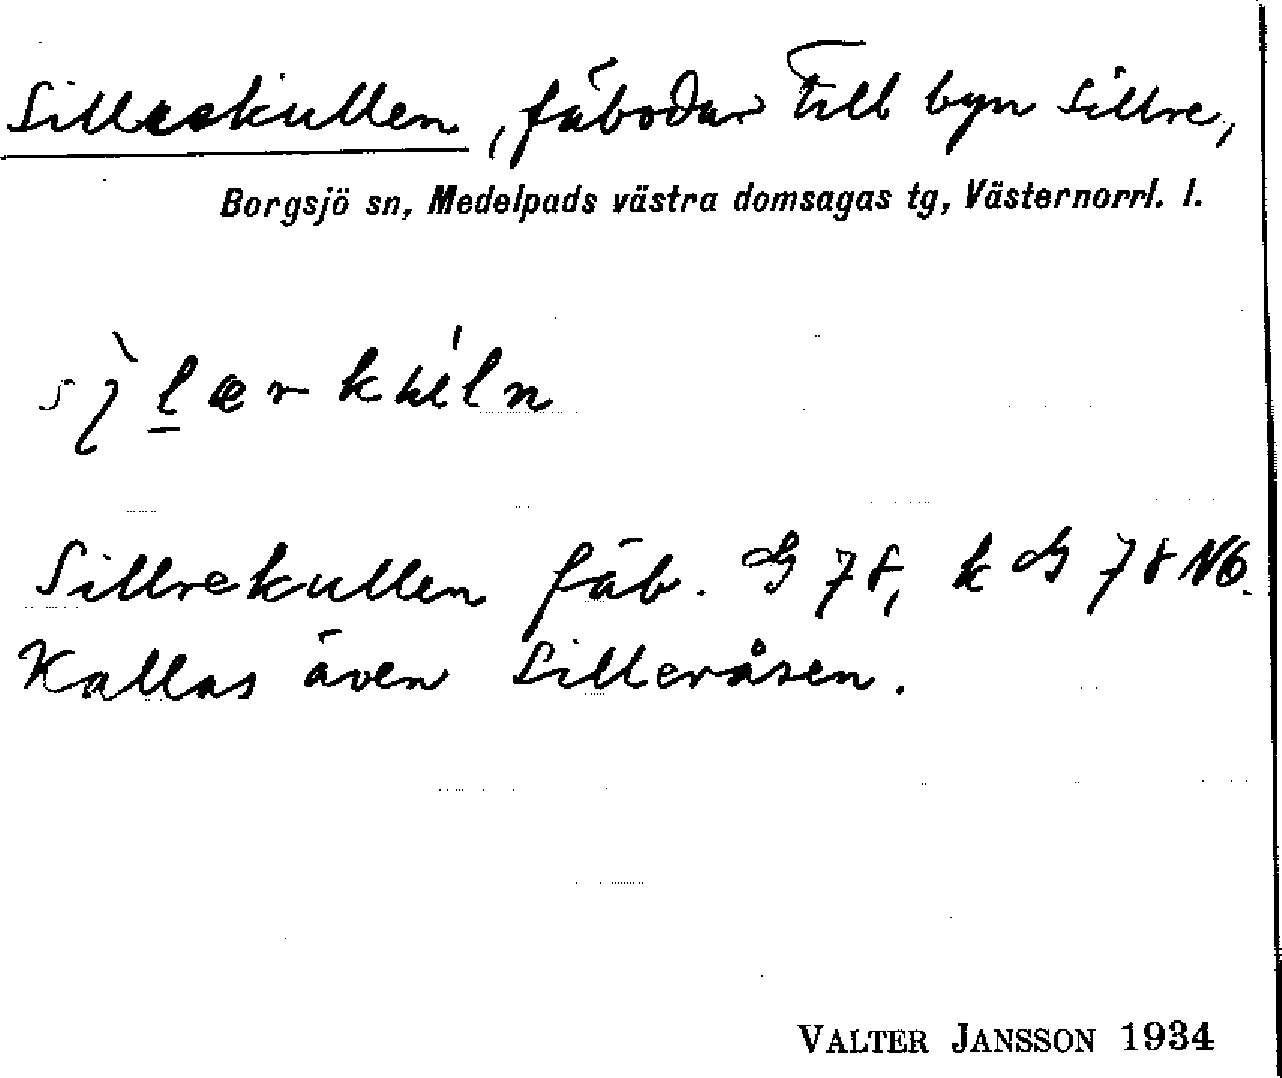 Sillreskullen, fäbodar till byn Sillre,
Borgsjö sn, Medelpads västra domsagas tg, Västernorrl. l.
Sillrekullen fäb. G 78, k G 78 NO.
Kallas även Silleråsen.
VALTER JANSSON 1934